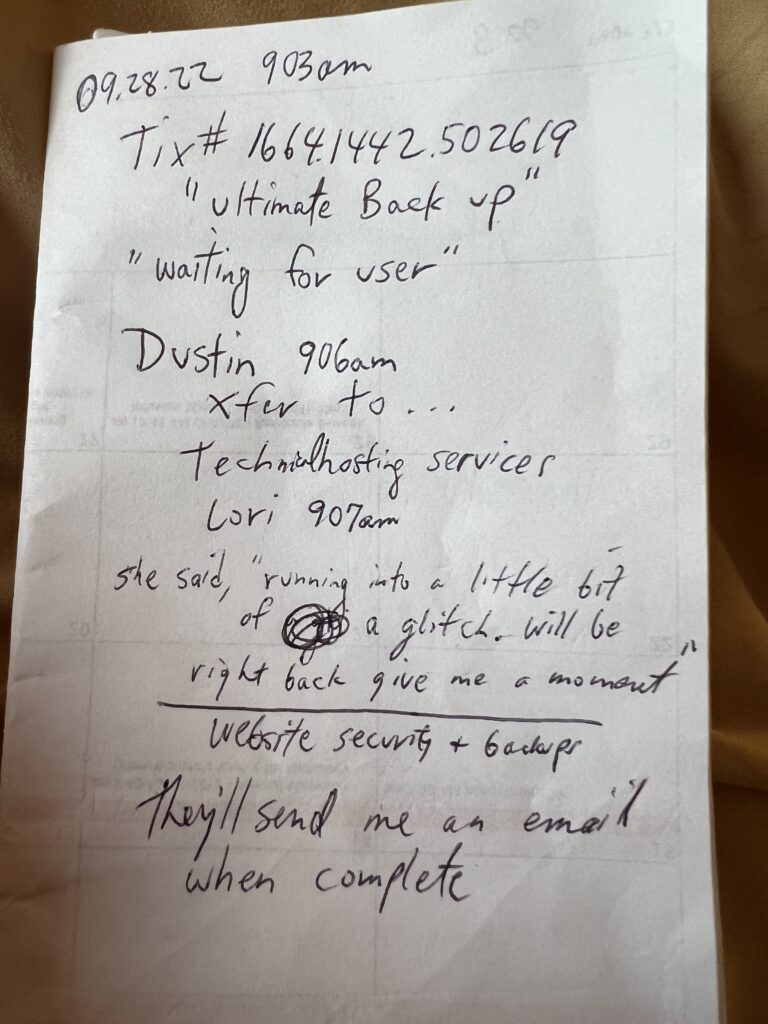 09.28.22 903am
Tix# 1664.1442.502619
"ultimate Back up"
"waiting for user"
Dustin 906am
xfer to...
Technicalhosting services
Lori 907am
she said, "running into a little bit
of a glitch. will be
right back give me a moment"
website security + backups
They'll send me an email
when complete